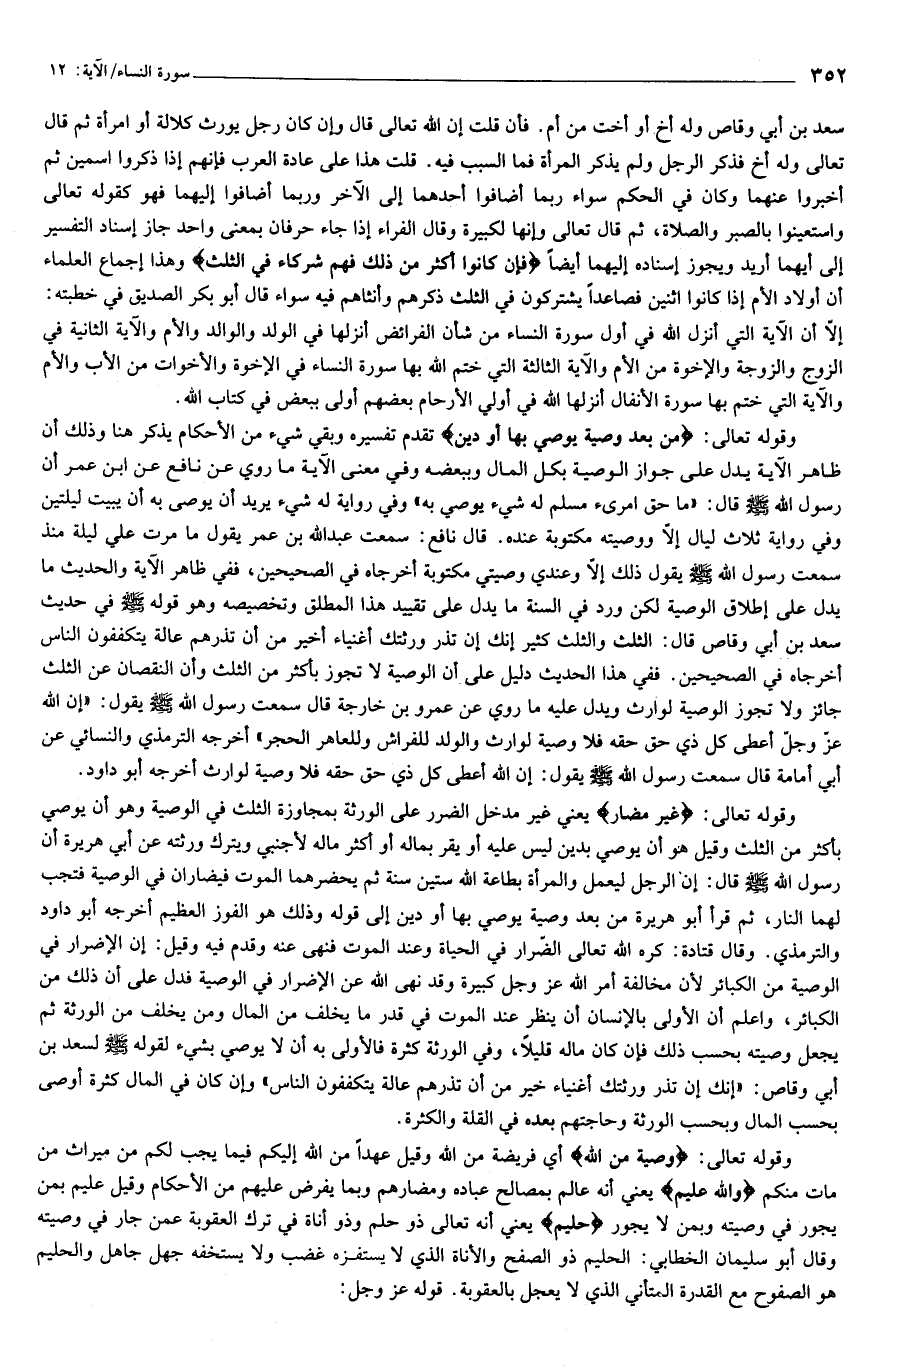 ٣٥٢ سورة النساء/الآية: ١٢
سعد بن أبي وقاص وله أخ أو أخت من أم. فأن قلت إن الله تعالى قال وإن كان رجل يورث كلالة أو امرأة ثم قال
تعالى وله أخ فذكر الرجل ولم يذكر المرأة فما السبب فيه. قلت هذا على عادة العرب فإنهم إذا ذكروا اسمين ثم
أخبروا عنهما وكان في الحكم سواء ربما أضافوا أحدهما إلى الآخر وربما أضافوا إليهما فهو كقوله تعالى
واستعينوا بالصبر والصلاة، ثم قال تعالى وإنها لكبيرة وقال الفراء إذا جاء حرفان بمعنى واحد جاز إسناد التفسير
إلى أيهما أريد ويجوز إسناده إليهما أيضاً ﴿فإن كانوا أكثر من ذلك فهم شركاء في الثلث﴾ وهذا إجماع العلماء
أن أولاد الأم إذا كانوا اثنين فصاعداً يشتركون في الثلث ذكرهم وأنثاهم فيه سواء قال أبو بكر الصديق في خطبته:
إلاّ أن الآية التي أنزل الله في أول سورة النساء من شأن الفرائض أنزلها في الولد والوالد والأم والآية الثانية في
الزوج والزوجة والإخوة من الأم والآية الثالثة التي ختم الله بها سورة النساء في الإخوة والأخوات من الأب والأم
والآية التي ختم بها سورة الأنفال أنزلها الله في أولي الأرحام بعضهم أولى ببعض في كتاب الله.
وقوله تعالى: ﴿من بعد وصية يوصي بها أو دين﴾ تقدم تفسيره وبقي شيء من الأحكام يذكر هنا وذلك أن
ظاهر الآية يدل على جواز الوصية بكل المال وببعضه وفي معنى الآية ما روي عن نافع عن ابن عمر أن
رسول الله ﷺ قال: «ما حق امرىء مسلم له شيء يوصي به» وفي رواية له شيء يريد أن يوصى به أن يبيت ليلتين
وفي رواية ثلاث ليال إلاّ ووصيته مكتوبة عنده. قال نافع: سمعت عبدالله بن عمر يقول ما مرت علي ليلة منذ
سمعت رسول الله ﷺ يقول ذلك إلاّ وعندي وصيتي مكتوبة أخرجاه في الصحيحين، ففي ظاهر الآية والحديث ما
يدل على إطلاق الوصية لكن ورد في السنة ما يدل على تقييد هذا المطلق وتخصيصه وهو قوله ﷺ في حديث
سعد بن أبي وقاص قال: الثلث والثلث كثير إنك إن تذر ورثتك أغنياء أخير من أن تذرهم عالة يتكففون الناس
أخرجاه في الصحيحين. ففي هذا الحديث دليل على أن الوصية لا تجوز بأكثر من الثلث وأن النقصان عن الثلث
جائز ولا تجوز الوصية لوارث ويدل عليه ما روي عن عمرو بن خارجة قال سمعت رسول الله ﷺ يقول: «إن الله
عزّ وجلّ أعطى كل ذي حق حقه فلا وصية لوارث والولد للفراش وللعاهر الحجر» أخرجه الترمذي والنسائي عن
أبي أمامة قال سمعت رسول الله ﷺ يقول: إن الله أعطى كل ذي حق حقه فلا وصية لوارث أخرجه أبو داود.
وقوله تعالى: ﴿غير مضار﴾ يعني غير مدخل الضرر على الورثة بمجاوزة الثلث في الوصية وهو أن يوصي
بأكثر من الثلث وقيل هو أن يوصي بدين ليس عليه أو يقر بماله أو أكثر ماله لأجنبي ويترك ورثته عن أبي هريرة أن
رسول الله ﷺ قال: إن الرجل ليعمل والمرأة بطاعة الله ستين سنة ثم يحضرهما الموت فيضاران في الوصية فتجب
لهما النار، ثم قرأ أبو هريرة من بعد وصية يوصي بها أو دين إلى قوله وذلك هو الفوز العظيم أخرجه أبو داود
والترمذي. وقال قتادة: كره الله تعالى الضّرار في الحياة وعند الموت فنهى عنه وقدم فيه وقيل: إن الإضرار في
الوصية من الكبائر لأن مخالفة أمر الله عز وجل كبيرة وقد نهى الله عن الإضرار في الوصية فدل على أن ذلك من
الكبائر، واعلم أن الأولى بالإنسان أن ينظر عند الموت في قدر ما يخلف من المال ومن يخلف من الورثة ثم
يجعل وصيته بحسب ذلك فإن كان ماله قليلاً، وفي الورثة كثرة فالأولى به أن لا يوصي بشيء لقوله ﷺ لسعد بن
أبي وقاص: «إنك إن تذر ورثتك أغنياء خير من أن تذرهم عالة يتكففون الناس» وإن كان في المال كثرة أوصى
بحسب المال وبحسب الورثة وحاجتهم بعده في القلة والكثرة.
وقوله تعالى: ﴿وصية من الله﴾ أي فريضة من الله وقيل عهداً من الله إليكم فيما يجب لكم من ميراث من
مات منكم ﴿والله عليم﴾ يعني أنه عالم بمصالح عباده ومضارهم وبما يفرض عليهم من الأحكام وقيل عليم بمن
يجور في وصيته وبمن لا يجور ﴿حليم﴾ يعني أنه تعالى ذو حلم وذو أناة في ترك العقوبة عمن جار في وصيته
وقال أبو سليمان الخطابي: الحليم ذو الصفح والأناة الذي لا يستفزه غضب ولا يستخفه جهل جاهل والحليم
هو الصفوح مع القدرة المتأني الذي لا يعجل بالعقوبة. قوله عز وجل: